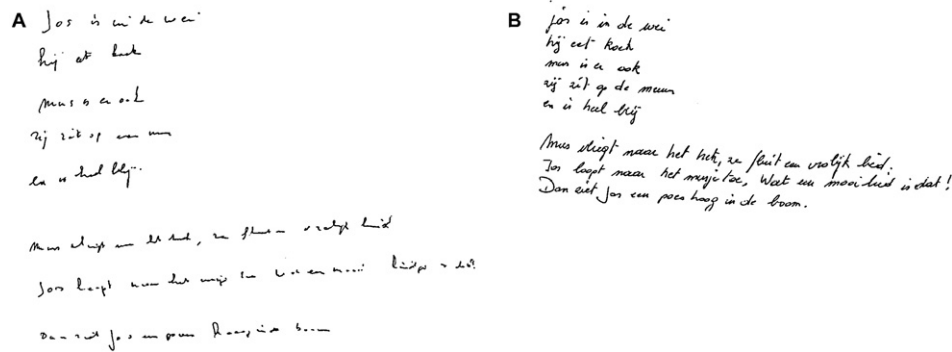 A
Jos is in de wei
hij et koek
mus is er ook
zij zit op een
en is heel blij.
Mus naar het, ze een vrolijk lied
Jos loopt naar het toe Wat een mooi is dat!
Dan ziet Jos een poes hoog in de boom
B
jos is in de wei
hij eet koek
mus is er ook
zij zit op de muur
en is heel blij
Mus vliegt naar het hek, ze fluit een vrolijk lied.
Jos loopt naar het musje toe, Wat een mooi lied is dat!
Dan ziet Jos een poes hoog in de boom.